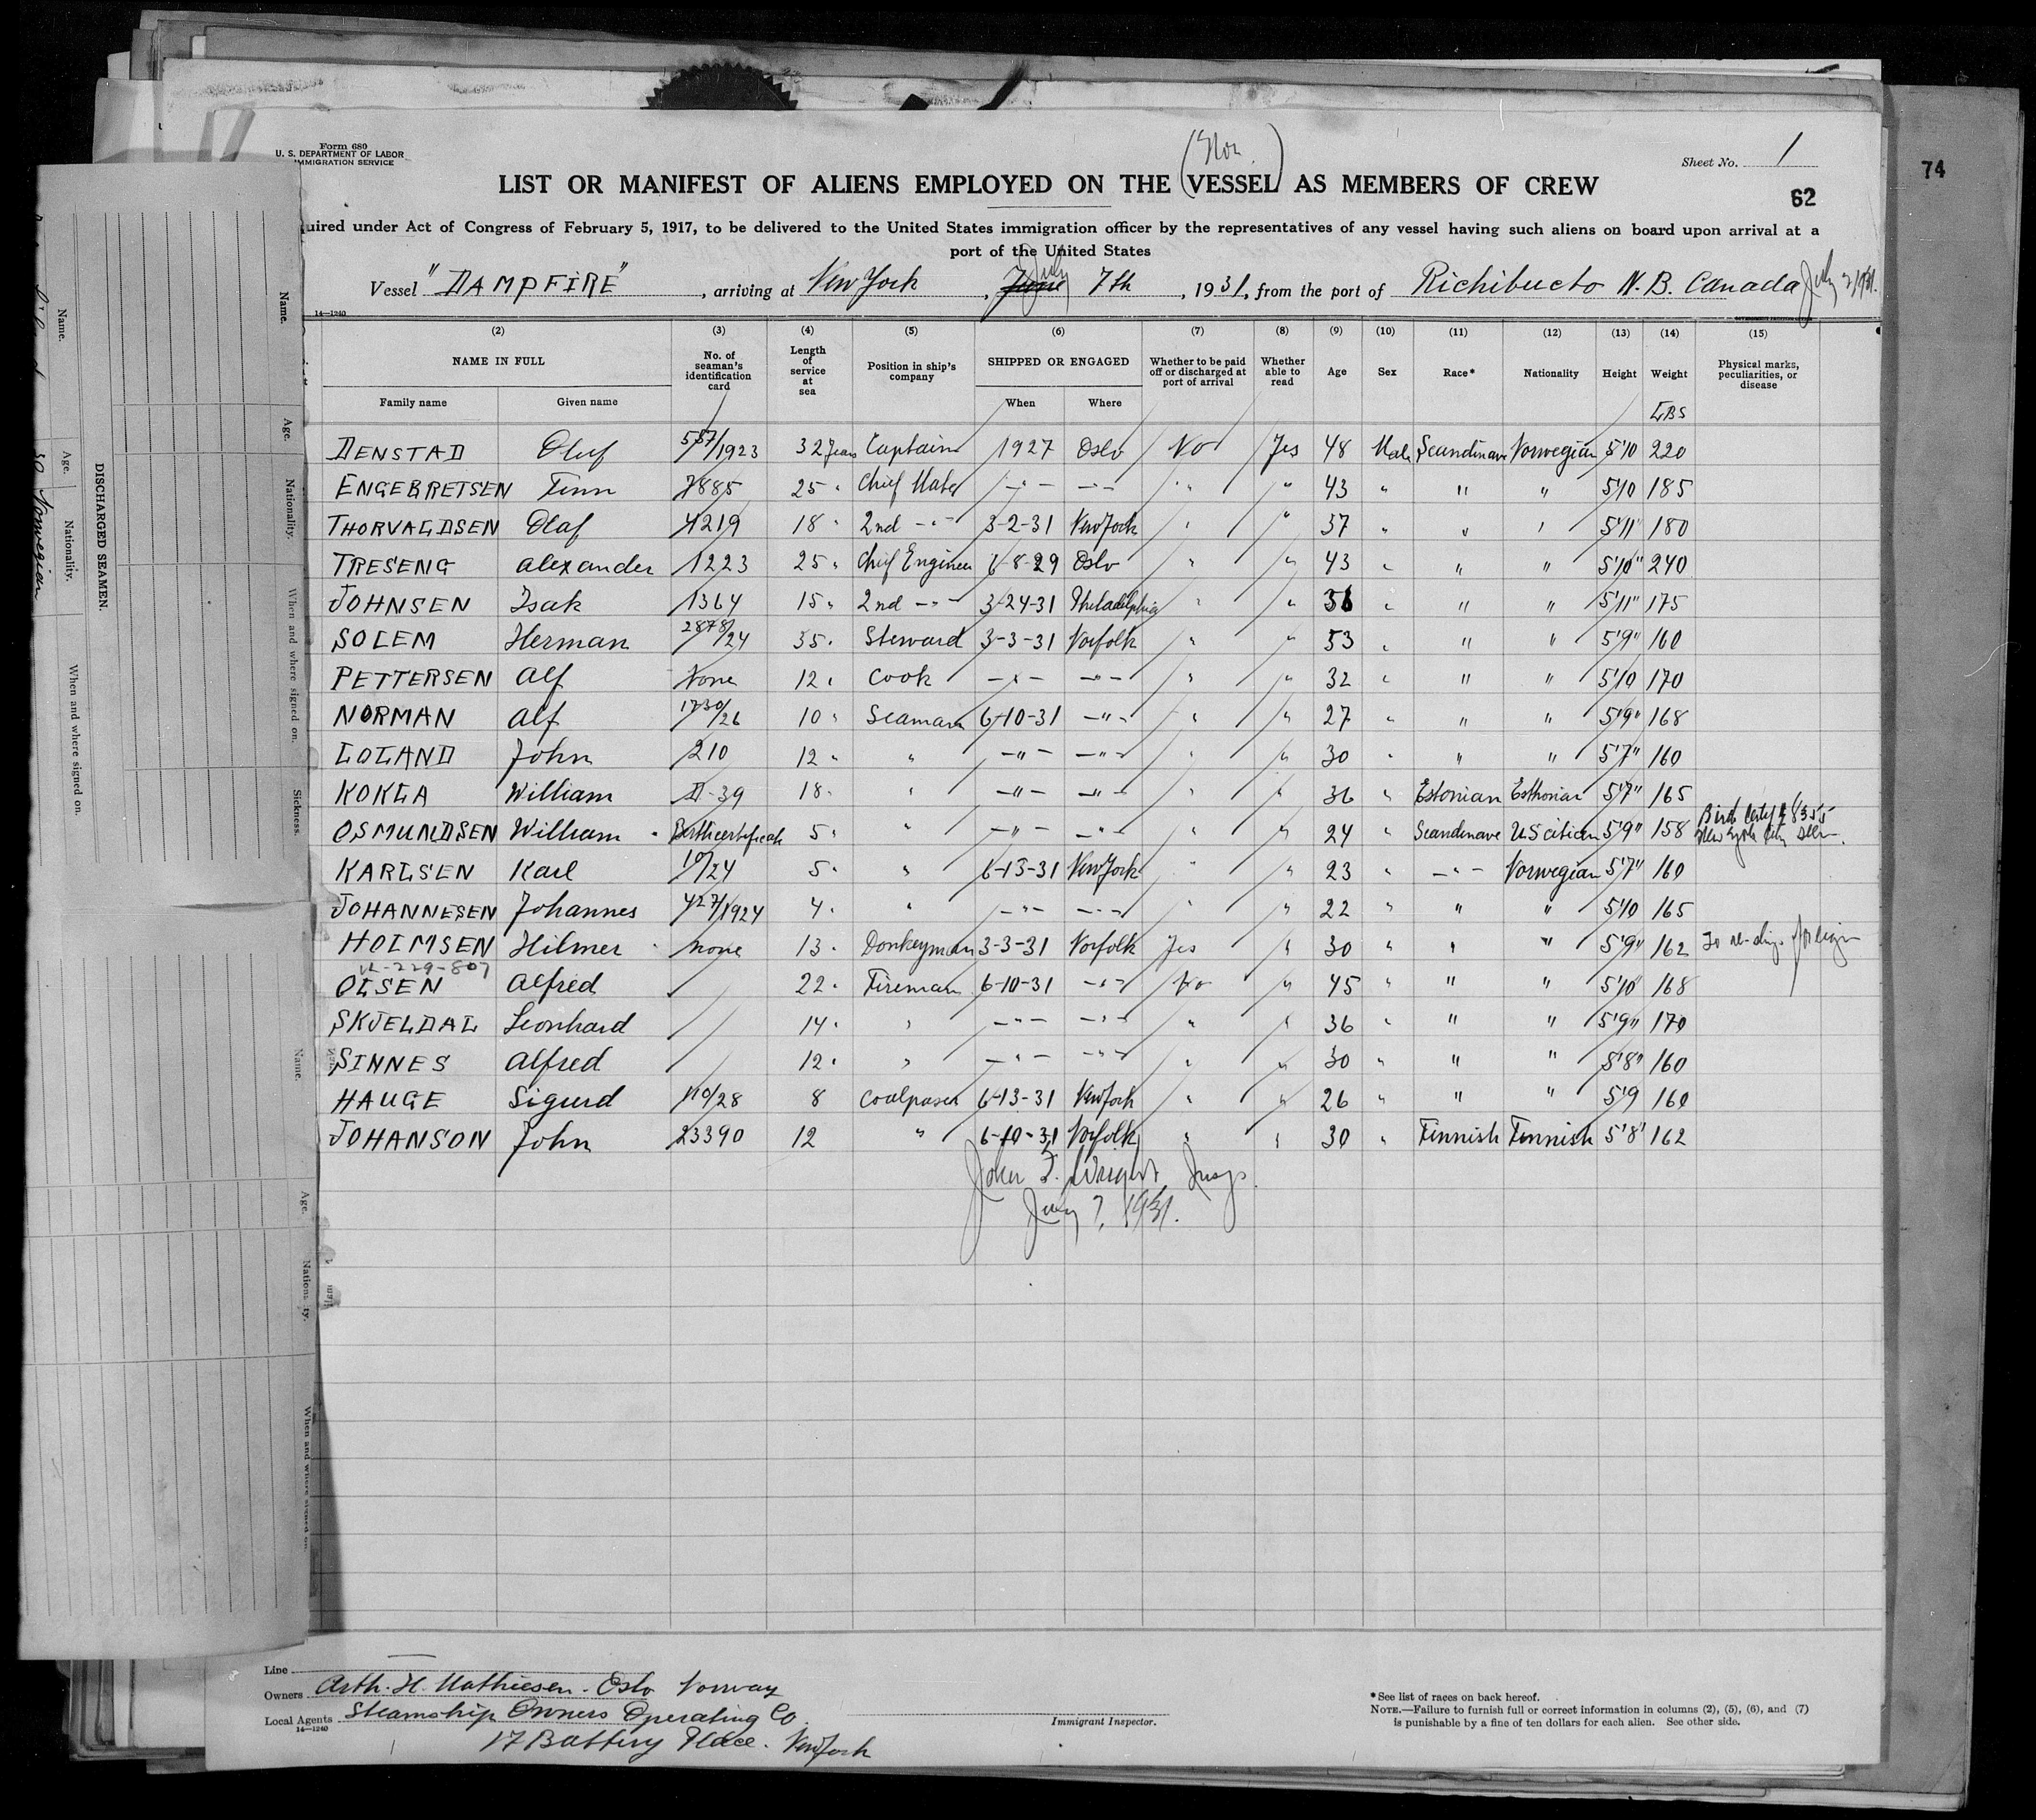 Form 680
U. S. DEPARTMENT OF LABOR
IMMIGRATION SERVICE
(Nor.)
Sheet No. 1
LIST OR MANIFEST OF ALIENS EMPLOYED ON THE VESSEL AS MEMBERS OF CREW
62
74
uired under Act of Congress of February 5, 1917, to be delivered to the United States immigration officer by the representatives of any vessel having such aliens on board upon arrival at a
port of the United States
Vessel "DAMPFIRE", arriving at New York, June July 7th, 1931, from the port of Richibucto N.B. Canada July 2/1931.
14—1240
(2) (3) (4) (5) (6) (7) (8) (9) (10) (11) (12) (13) (14) (15)
NAME IN FULL No. of seaman's identification card Length of service at sea Position in ship's company SHIPPED OR ENGAGED Whether to be paid off or discharged at port of arrival Whether able to read Age Sex Race* Nationality Height Weight Physical marks, peculiarities, or disease
Family name Given name When Where LBS
DENSTAD Oluf 557/1923 32 Years Captain 1927 Oslo No Yes 48 Male Scandinave Norwegian 5'10 220
ENGEBRETSEN Finn 2885 25 " Chief Mate —"— —"— " " 43 " " " 5'10 185
THORVALDSEN Olaf 4219 18 " 2nd —"— 3-2-31 New York " " 37 " " " 5'11" 180
TRESENG Alexander 1223 25 " Chief Engineer 6-8-29 Oslo " " 43 " " " 5'10" 240
JOHNSEN Isak 1364 15 " 2nd —"— 3-24-31 Philadelphia " " 36 " " " 5'11" 175
SOLEM Herman 2878/24 35 " Steward 3-3-31 Norfolk " " 53 " " " 5'9" 160
PETTERSEN Alf None 12 " Cook —"— —"— " " 32 " " " 5'10 170
NORMAN Alf 1730/26 10 " Seaman 6-10-31 —"— " " 27 " " " 5'9" 168
LOLAND John 210 12 " " —"— —"— " " 30 " " " 5'7" 160
KOKLA William II-39 18 " " —"— —"— " " 36 " Estonian Esthonian 5'7" 165
OSMUNDSEN William Birthcertificate 5 " " —"— —"— " " 24 " Scandinave US citizen 5'9" 158 Birth Certif # 8355 New York City
KARLSEN Karl 10/24 5 " " 6-13-31 New York " " 23 " —"— Norwegian 5'7" 160
JOHANNESEN Johannes 427/1924 4 " " —"— —"— " " 22 " " " 5'10 165
HOLMSEN Hilmer none 13 " Donkeyman 3-3-31 Norfolk Yes " 30 " " " 5'9" 162 To re-ship foreign
VL-229-807
OLSEN Alfred 22 " Fireman 6-10-31 —"— No " 45 " " " 5'10" 168
SKJELDAL Leonhard 14 " " —"— —"— " " 36 " " " 5'9" 170
SINNES Alfred 12 " " —"— —"— " " 30 " " " 5'8" 160
HAUGE Sigurd 110/28 8 Coalpaser 6-13-31 New York " " 26 " " " 5'9 160
JOHANSON John 23390 12 " 6-10-31 Norfolk " " 30 " Finnish Finnish 5'8" 162
John F. Wright Insp.
July 7, 1931.
Line
Owners Arth. H. Mathiesen - Oslo Norway
Local Agents Steamship Owners Operating Co.
14—1240
17 Battery Place. New York
Immigrant Inspector.
*See list of races on back hereof.
NOTE.—Failure to furnish full or correct information in columns (2), (5), (6), and (7)
is punishable by a fine of ten dollars for each alien. See other side.
DISCHARGED SEAMEN.
Name. Age. Nationality. When and where signed on.
Norwegian
Name. Age. Nationality. When and where signed on. Sickness.
Name. Age. Nationality. When and where signed on.